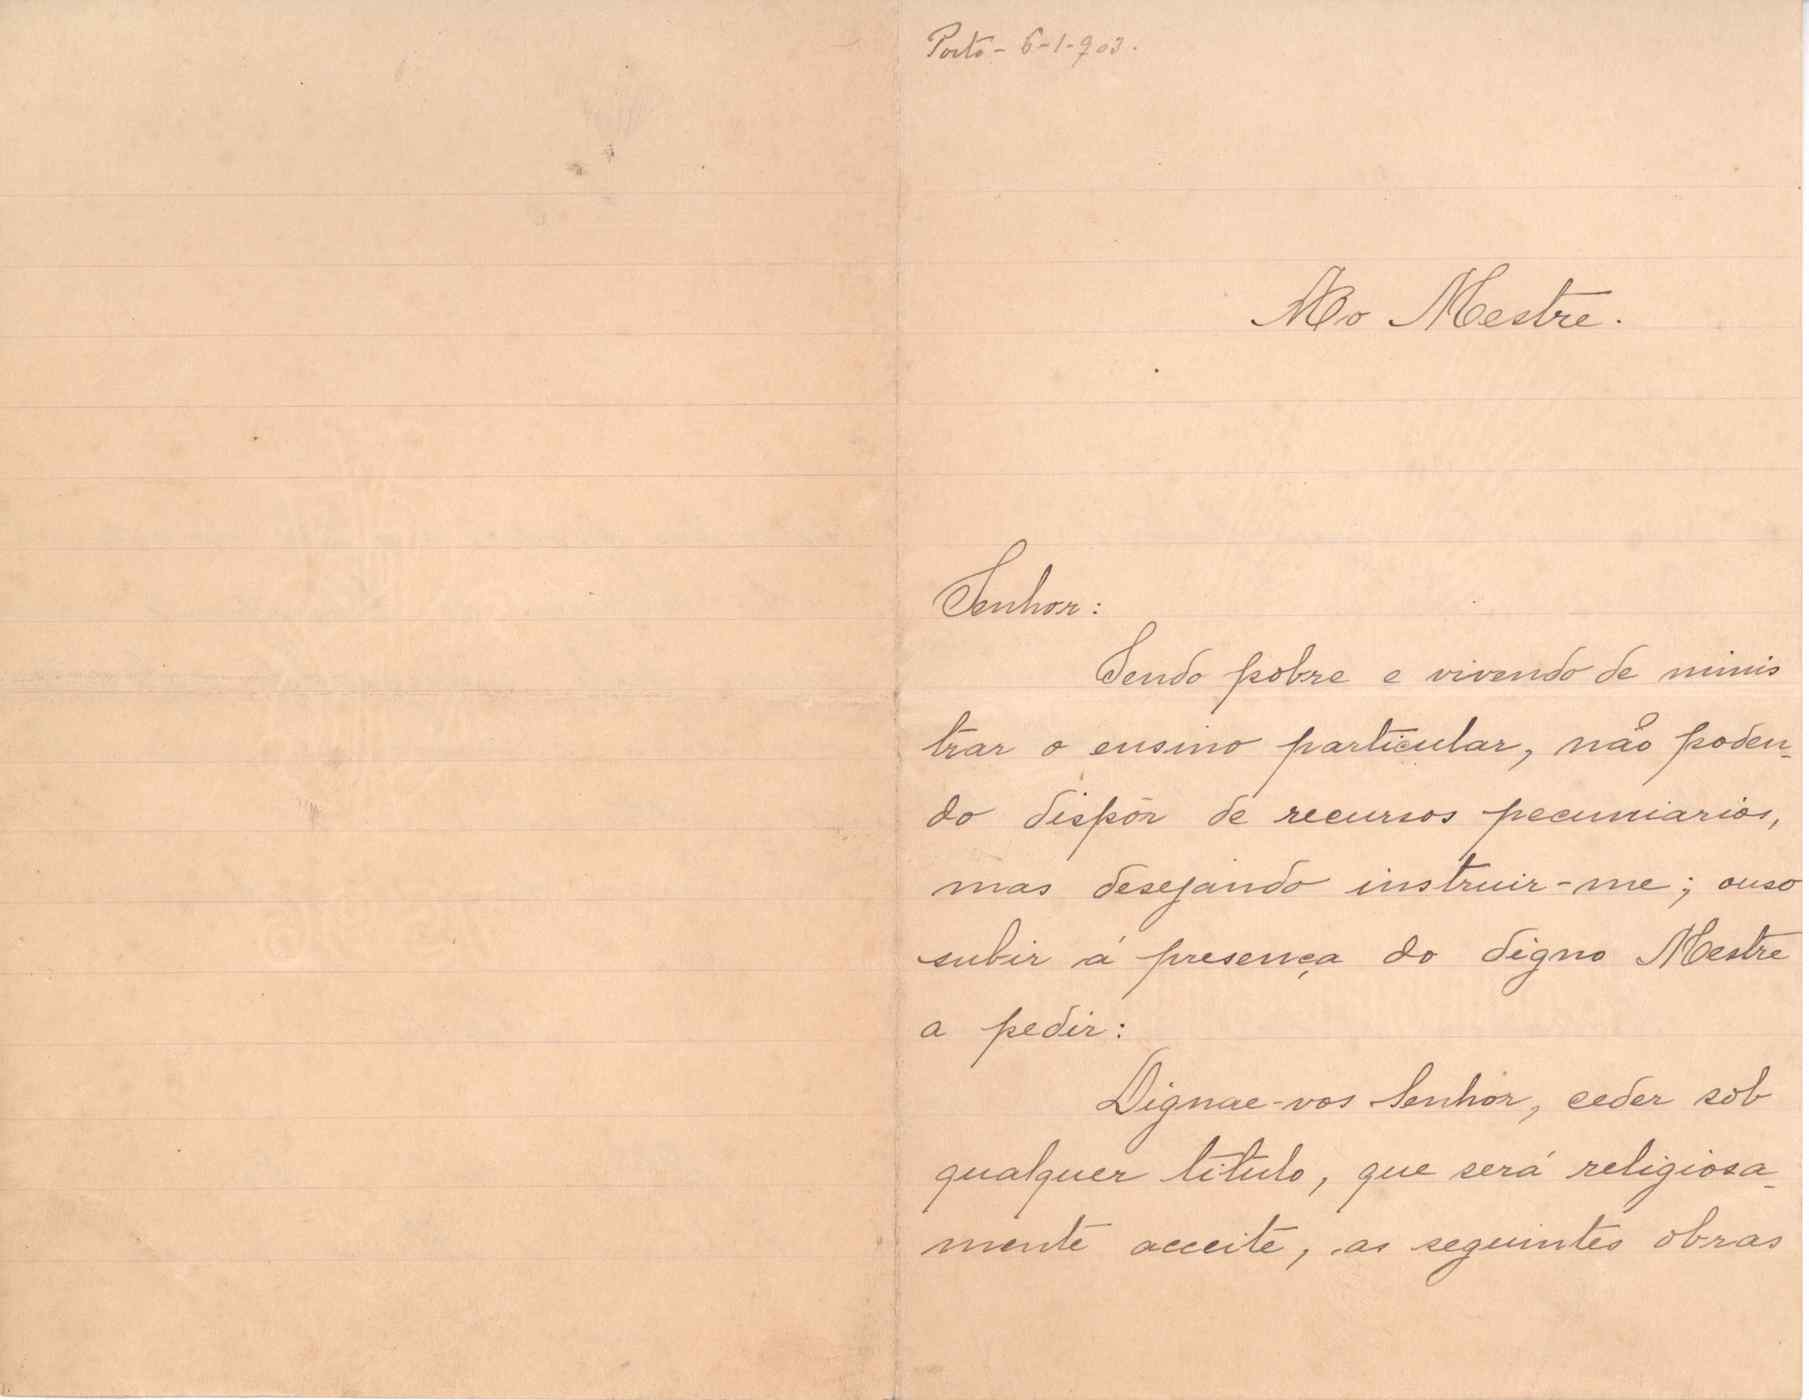 Porto - 6-1-903.
Ao Mestre.
Senhor:
Sendo pobre e vivendo de minis
trar o ensino particular, não poden-
do dispôr de recursos pecuniarios,
mas desejando instruir-me; ouso
subir á presença do digno Mestre
a pedir:
Dignae-vos Senhor, ceder sob
qualquer titulo, que será religiosa-
mente acceite, as seguintes obras